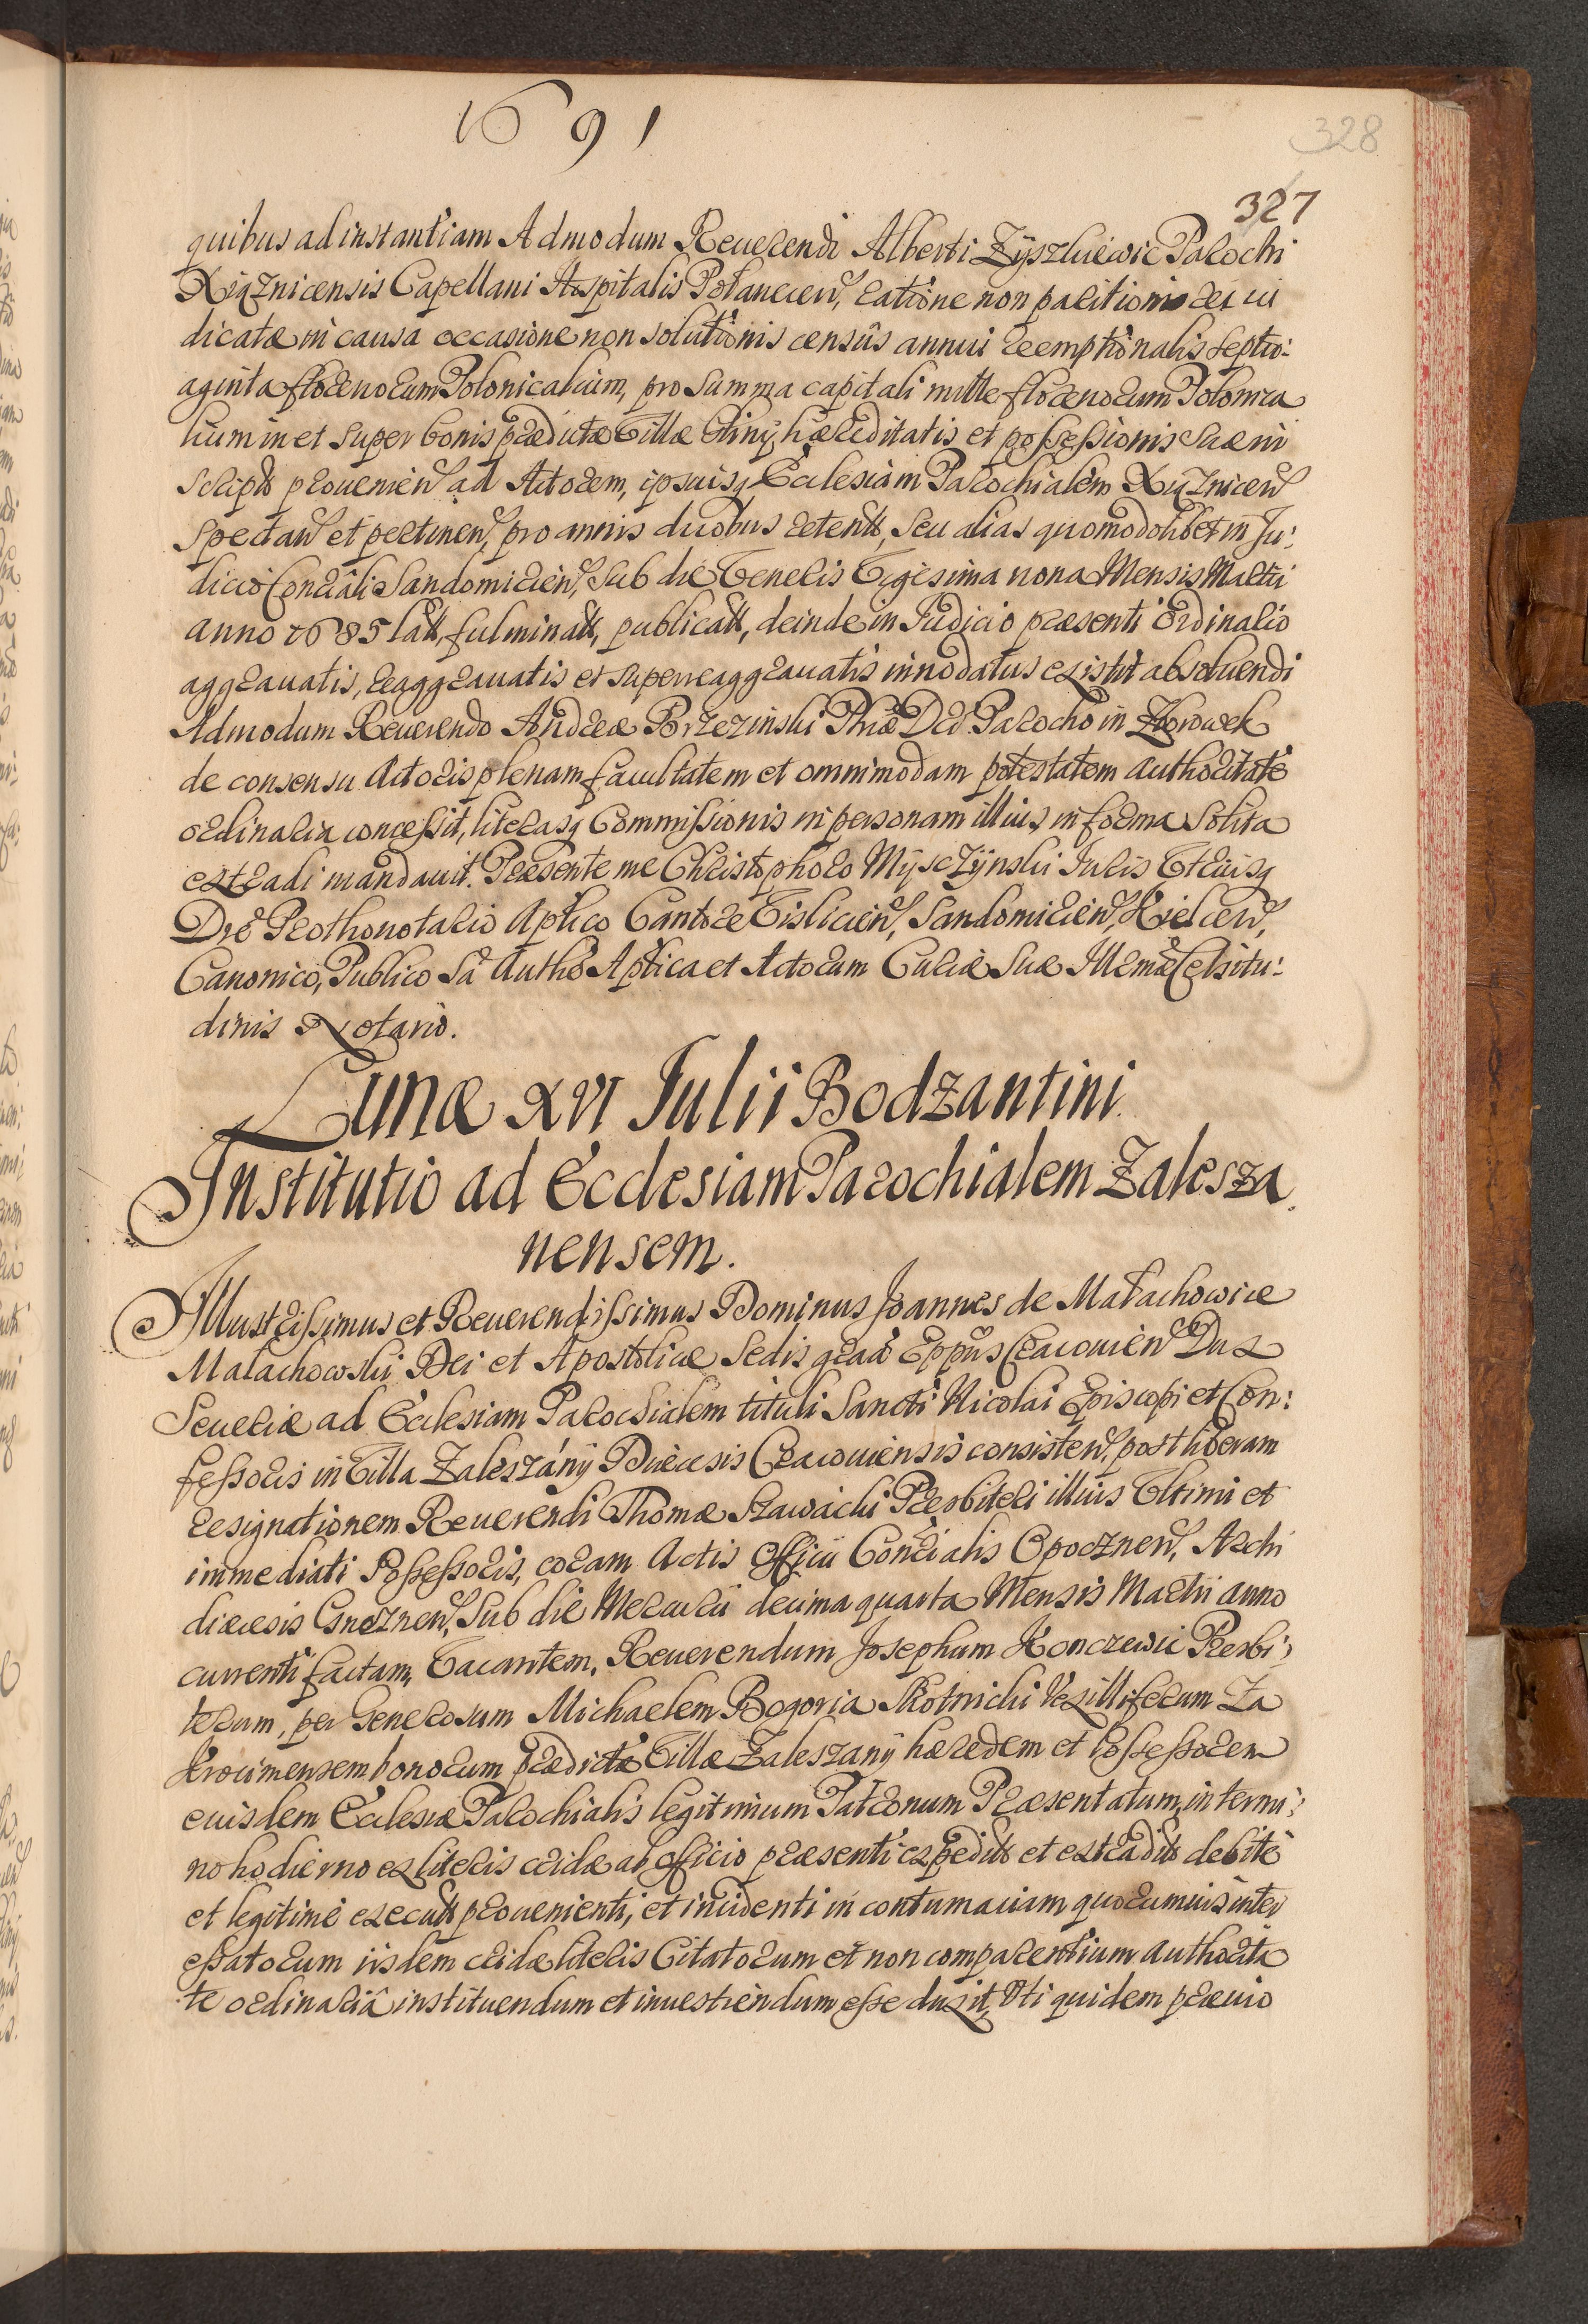 1691
328
327
quibus ad instantiam Admodum Reuerendi Alberti Zyszkiewic Parochi
Xiąznicensis Capellani Hospitalis Połanecen, ratione non paritionis rei iu
dicatæ in causa occasione non solutionis censûs annui reemptionalis septu:
aginta florenorum Polonicalium, pro summa capitali mille florenorum Polonica
lium in et super bonis prædictæ Villæ Gliny hæreditatis et possessionis suæ in
scriptt prouenien ad Actorem, ipsiusq Ecclesiam Parochialem Xiąznicen
spectan et pertinen, pro annis duobus retentt, seu alias quomodolibet in Ju:
dicio Conciali Sandomirien, sub die Veneris Vigesima nona Mensis Martii
anno 1685 latt, fulminatt, publicatt, deinde in Iudicio præsenti Ordinario
aggrauatis, reaggrauatis et superreaggrauatis innodatus existit absoluendi
Admodum Reuerendo Andreæ Brzezinski Phiæ Drd Parocho in Zborowek
de consensu Actoris plenam facultatem et omnimodam potestatem Authoritate
ordinaria concessit, literasq Commissionis in personam illius in forma solita
extradi mandauit. Præsente me Christophoro Myszczynski Iuris Vtriusq
Dre Prothonotario Aplico Cantore Vislicien, Sandomirien, Kielcen,
Canonico, Publico Sâ Authe Aplica et Actorum Curiæ Suæ Illmæ Celsitu:
dinis Notario.
Lunæ XVI Iulii Bodzantini
Institutio ad Ecclesiam Parochialem Zalesza
nensem.
Illustrissimus et Reuerendissimus Dominus Joannes de Małachowice
Małachowski Dei et Apostolicæ Sedis graâ Eppus Cracouien Dux
Seueriæ ad Ecclesiam Parochialem tituli Sancti Nicolai Episcopi et Con:
fessoris in Villa Zaleszány Diæcesis Cracouiensis consisten, post liberam
resignationem Reuerendi Thomæ Sławicki Præsbiteri illius Vltimi et
immediati Possessoris, coram Actis Officii Foncialis Opocznen, Archi
diæcesis Gneznen, sub die Mercurii decima quarta Mensis Martii anno
currenti factam, Vacantem, Reuerendum Josephum Konczewic Præsbi:
terum, per Generosum Michaelem Bogoria Skotnicki Vexilliferum Za
kroczimensem bonorum prædictæ Villæ Zaleszany hæredem et Possessorem
eiusdem Ecclesiæ Parochialis legitimum Patronum Præsentatum, in termi:
no hodierno ex literis cridæ ab Officio præsenti expeditt et extraditt debite
et legitime executt prouenienti, et incidenti in contumaciam quorumuis inter
essatorum iisdem cridæ literis Citatorum et non comparentium Authorita
te ordinariâ instituendum et inuestiendum esse duxit, Vti quidem præuio